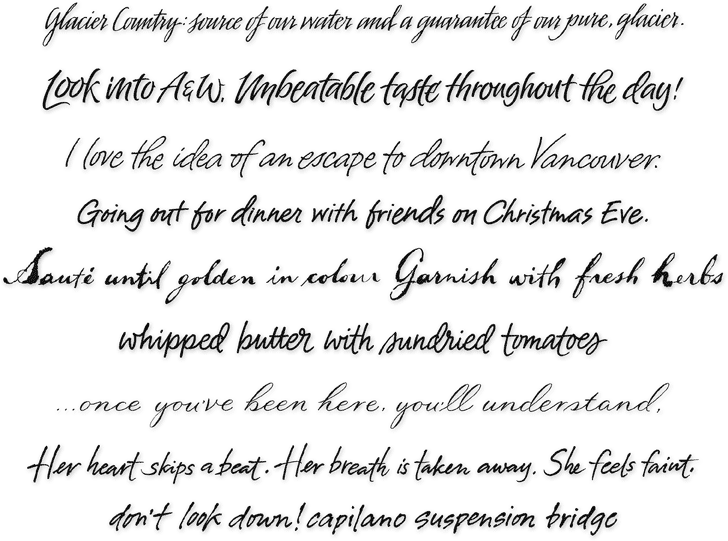 Glacier Country: source of our water and a guarantee of our pure, glacier.
Look into A&W. Unbeatable taste throughout the day!
I love the idea of an escape to downtown Vancouver.
Going out for dinner with friends on Christmas Eve.
Sauté until golden in colour Garnish with fresh herbs
whipped butter with sundried tomatoes
...once you've been here, you'll understand,
Her heart skips a beat. Her breath is taken away. She feels faint.
don't look down! capilano suspension bridge